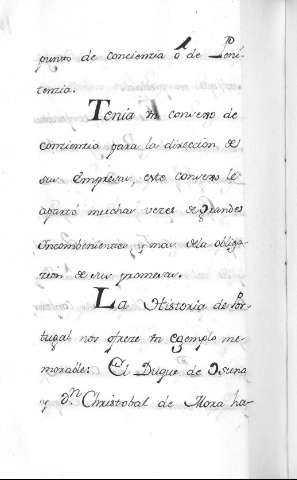 punto de conciencia ó de Peni-
tenzia.
Tenia un consexo de
conzienzia para la direccion de
sus Empresas, este consexo le
apartó muchas vezes de grandes
Incombenientes, y mas dela obliga-
zion de sus promesas.
La Historia de Por-
tugal nos ofreze un egemplo me-
morable: El Duque de Osuna
y Dn. Christobal de Mora ha-